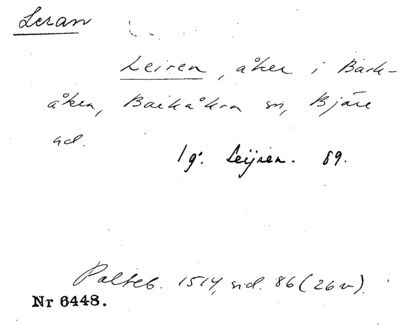 Leran
Leiren, åker i Bark-
åkra, Barkåkra sn, Bjäre
hd.
1 g. Leijren. 89.
Palteb. 1514, sid. 86 (26 v).
Nr 6448.